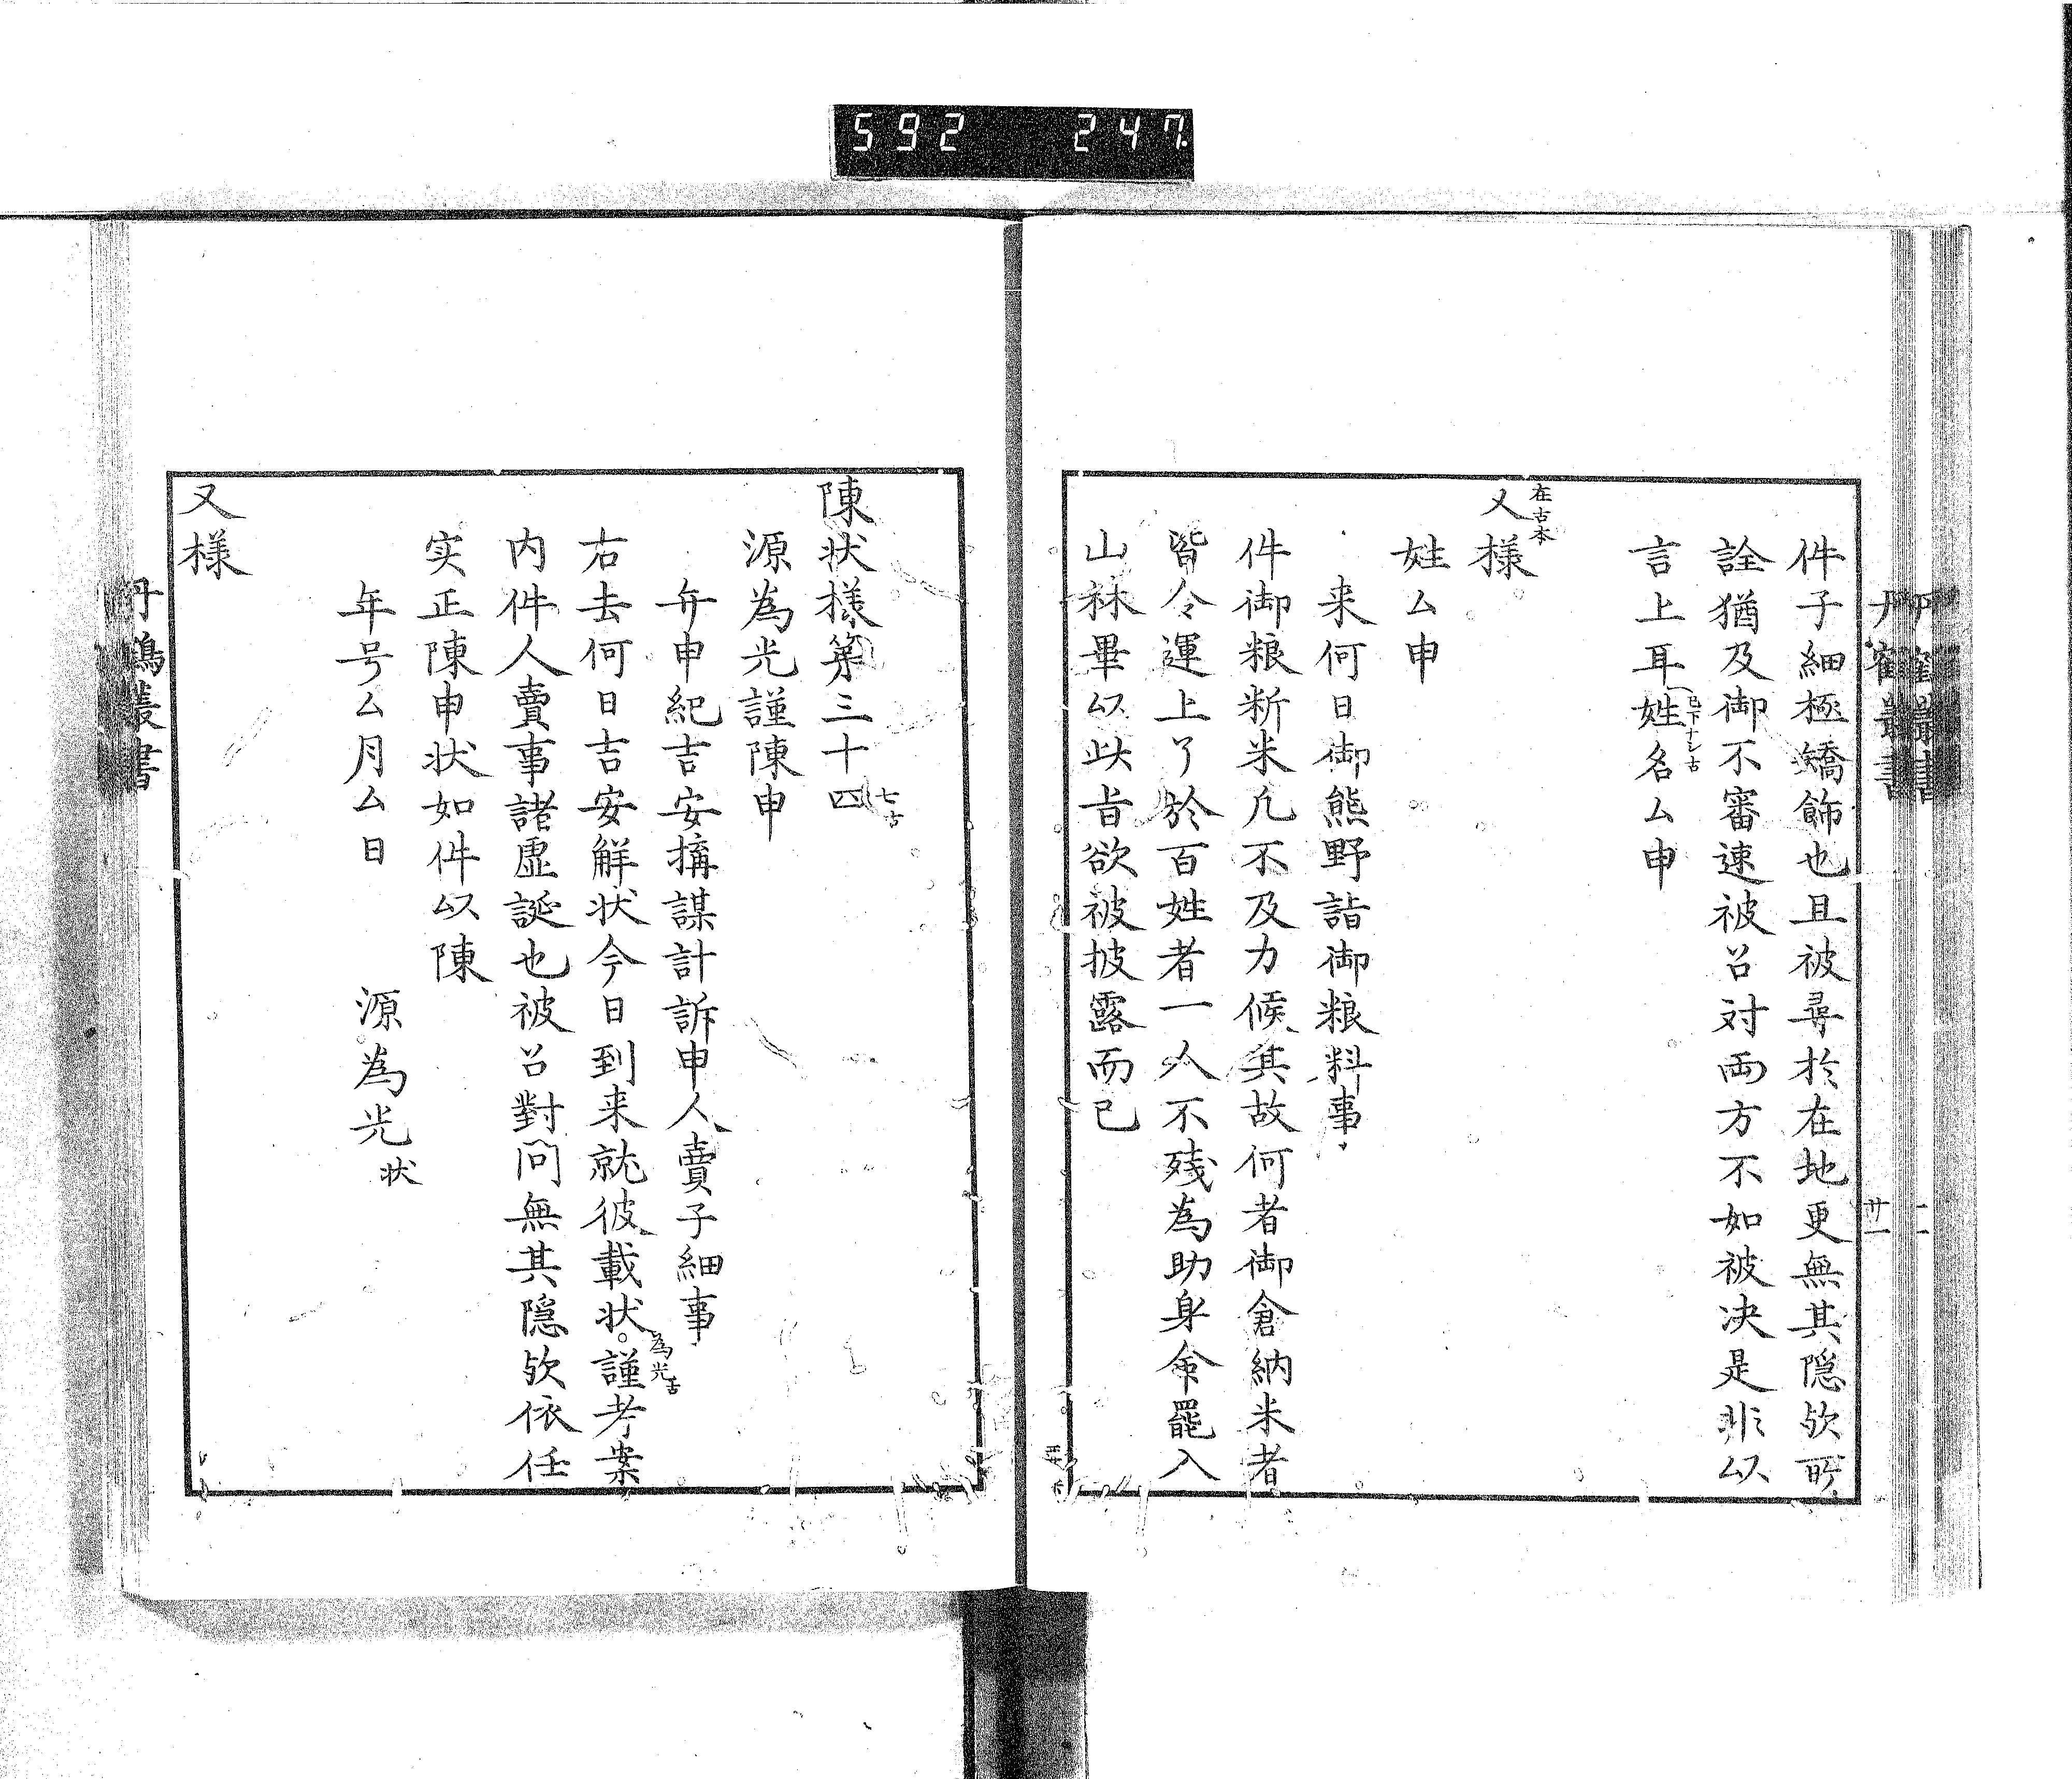 592 247
件子細極矯飾也且被尋於在地更無其隠欤所
詮猶及御不審速被召対両方不如被決是非以
言上耳姓名ム申
已下ナシ古
在古本
又様
姓ム申
来何日御熊野詣御粮料事
件御粮断米凡不及力候其故何者御倉納米者
皆令運上了於百姓者一人不残為助身命罷入
山林畢以此旨欲被披露而已
廿一
陳状様第三十四
七古
源為光謹陳申
弁申紀吉安搆謀計訴申人賣子細事
右去何日吉安解状今日到来就彼載状。謹考案
為光古
内件人賣事諸虚誕也被召對問無其隠欤依任
实正陳申状如件以陳
年号ム月ム日 源為光状
又様
丹鶴叢書